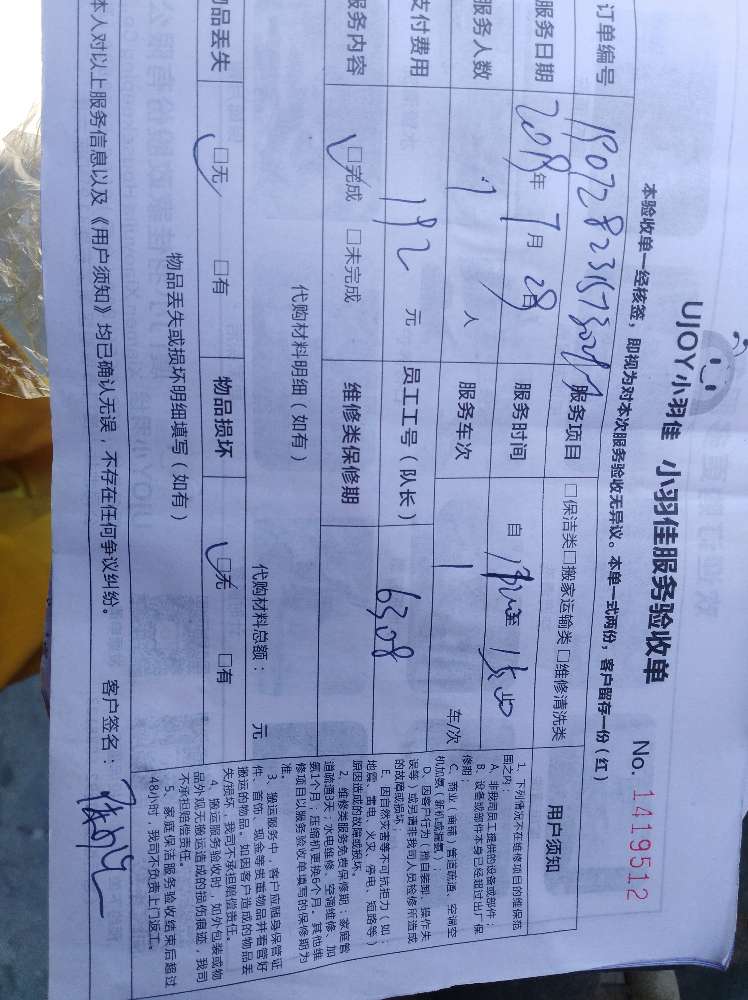 UJOY小羽佳 小羽佳服务验收单 No. 1419512
本验收单一经核签，即视为对本次服务验收无异议。本单一式两份，客户留存一份（红）
订单编号 服务项目 □保洁类□搬家运输类□维修清洗类
服务日期 2018年7月28日 服务时间 自 至
服务人数 人 服务车次 1 车/次
支付费用 192 元 员工工号（队长） 6308
服务内容 □完成 □未完成 维修类保修期
代购材料明细（如有） 代购材料总额： 元
物品丢失 □无 □有 物品损坏 □无 □有
物品丢失或损坏明细填写（如有）
本人对以上服务信息以及《用户须知》均已确认无误，不存在任何争议纠纷。 客户签名：
用户须知
1、下列情况不在维修项目的维保范
围之内：
A、非我司员工提供的设备或部件；
B、设备或部件本身已经超过出厂保
修期；
C、商业（商铺）管道疏通、空调空
机加氨（新机或漏氨）；
D、因客户行为（擅自装卸、操作失
误等）或另请非我司人员检修所造成
的故障或损坏；
E、因自然灾害等不可抗拒力（如：
地震、雷电、火灾、停电、短路等）
原因造成的故障或损坏。
2、维修类服务免费保修期：家庭管
道疏通3天；水电维修、空调维修、加
氨1个月；压缩机更换6个月。其他维
修项目以服务验收单填写的保修期为
准。
3、搬运服务中，客户应随身保管证
件、首饰、现金等贵重物品并看管好
搬运的物品。如因客户造成的物品丢
失/损坏，我司不承担赔偿责任。
4、搬运服务验收时，如外包装或物
品外观无搬运造成的损伤痕迹，我司
不承担赔偿责任。
5、家庭保洁服务验收结束后超过
48小时，我司不负责上门返工。